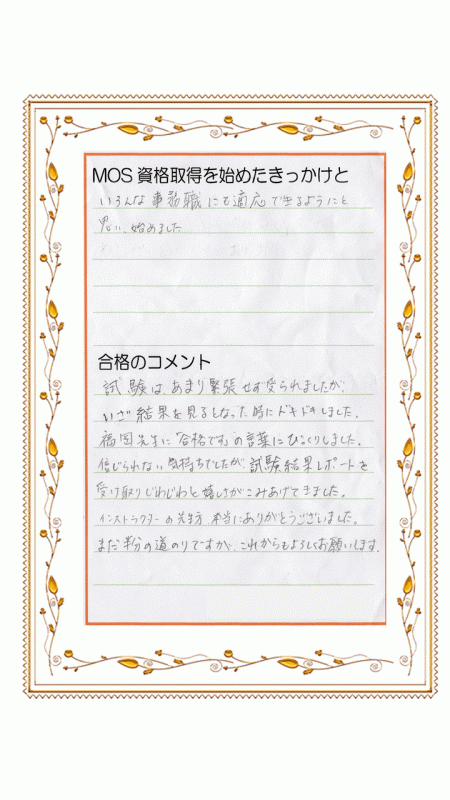 MOS 資格取得を始めたきっかけと
いろんな事務職にも適応できるようにと
思い、始めました
合格のコメント
試験は、あまり緊張せず受られましたが、
いざ結果を見るとなった時にドキドキしました。
福岡先生に「合格です」の言葉にびっくりしました。
信じられない気持ちでしたが、試験結果レポートを
受け取りじわじわと嬉しさがこみあげてきました。
インストラクターの先生方、本当にありがとうございました。
まだ半分の道のりですが、これからもよろしくお願いします。